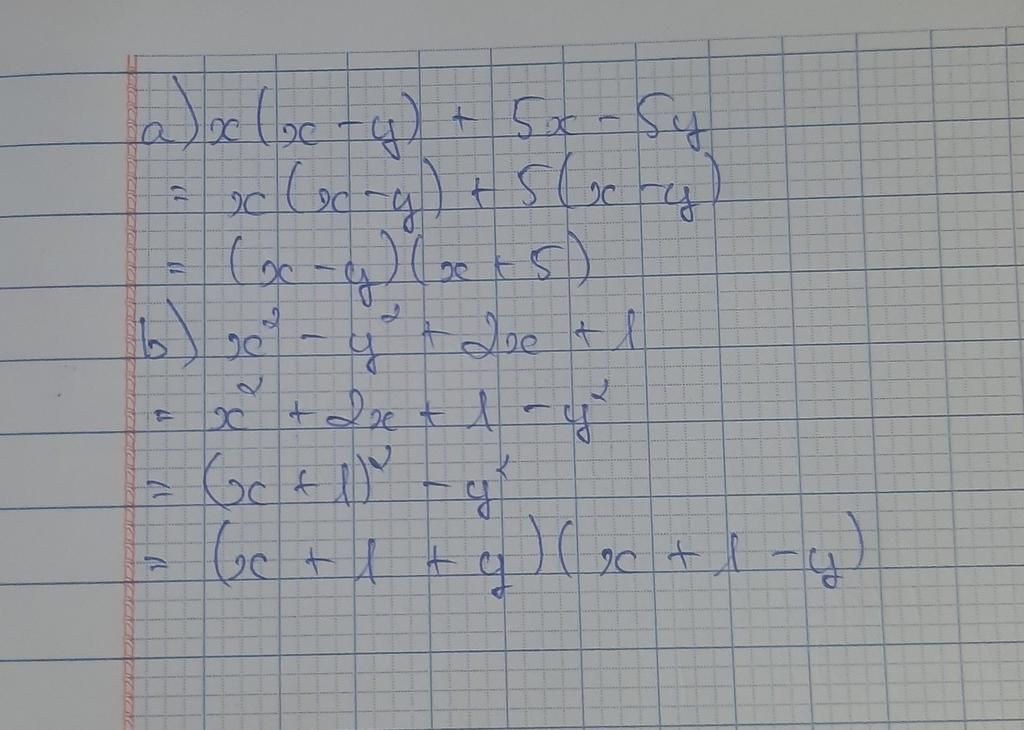 a) x(x - y) + 5x - 5y
= x(x - y) + 5(x - y)
= (x - y)(x + 5)
b) x² - y² + 2x + 1
= x² + 2x + 1 - y²
= (x + 1)² - y²
= (x + 1 + y)(x + 1 - y)